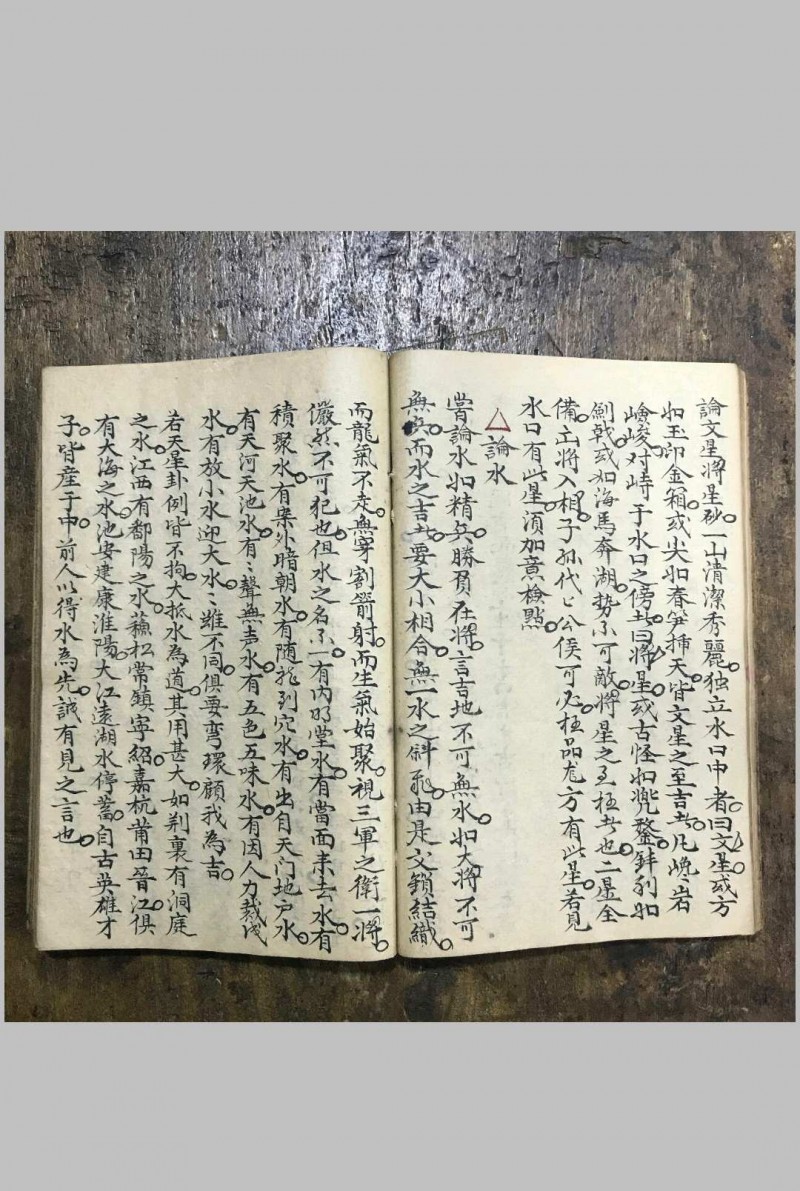 論文星將星砂一山清潔秀麗独立水口中者曰文星或方
如玉印金箱或尖如春笋揷天皆文星之至吉者凡巉岩
嶮峻对峙于水口之傍者曰將星或古怪如兠鍪鉡列如
劍戟或如海馬奔湖势不可敵將星之至極者也二星全
備出將入相子孙代匕公侯可必極品尨方有此星若見
水口有此星湏加意檢點
論水
嘗論水如精兵勝負在將言吉地不可無水如大將不可
無兵而水之吉者要大小相合無一水之斜飛由是交鎖結織
而龍氣不走無穿割箭射而生氣始聚視三軍之衛一將
儼然不可犯也但水之名不一有內明堂水有當面来去水有
積聚水有案外暗朝水有随龙到穴水有出自天门地户水
有天河天池水有〻聲無声水有五色五味水有因人力裁成
水有放小水迎大水〻雖不同俱要弯環顧我為吉
若天星卦例皆不拘大抵水為道其用甚大如荆襄有洞庭
之水江西有鄱陽之水蘓松常鎮寧紹嘉杭莆田晉江俱
有大海之水池安建康淮陽大江遠湖水停蓄自古英雄才
子皆産于中前人以得水為先誠有見之言也